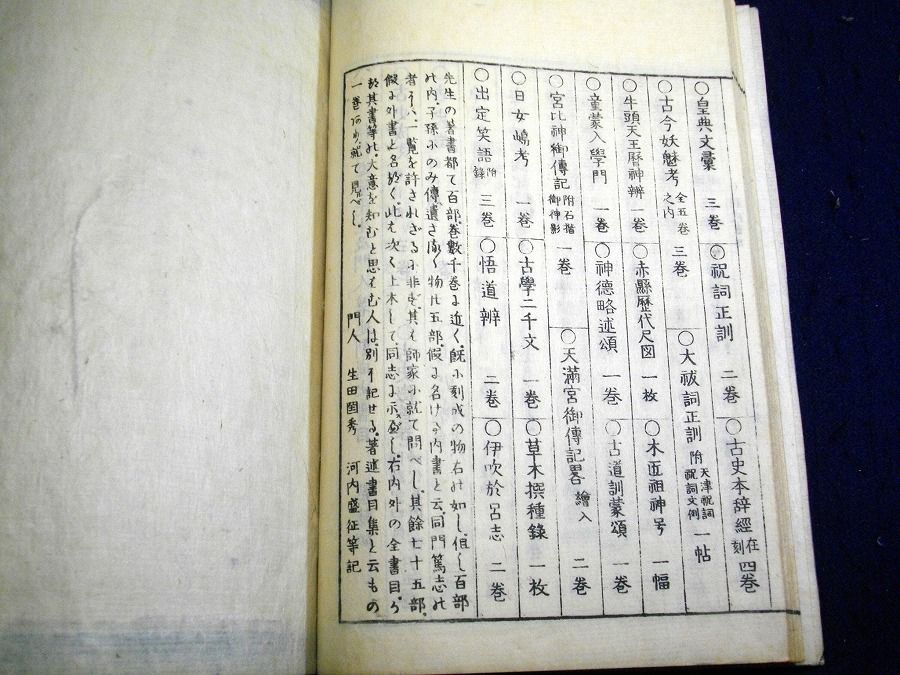 ○皇典文彙 三巻 ○祝詞正訓 二巻 ○古史本辞經 在刻 四巻
○古今妖魅考 全五巻之内 三巻 ○大祓詞正訓 附 天津祝詞 祝詞文例 一帖
○牛頭天王暦神辨 一巻 ○赤縣歴代尺図 一枚 ○木匠祖神号 一幅
○童蒙入學門 一巻 ○神德略述頌 一巻 ○古道訓蒙頌 一巻
○宮比神御傳記 附石楷御神影 一巻 ○天滿宮御傳記畧 繪入 二巻
○日女嶋考 一巻 ○古學二千文 一巻 ○草木撰種錄 一枚
○出定笑語 附錄 三巻 ○悟道辨 二巻 ○伊吹於呂志 二巻
先生の著書都て百部、巻數千巻に近く、既に刻成の物右の如し、但し百部
の内、子孫にのみ傳遺さるべく物せ五部、假に名けて内書と云、同門篤志の
者そハ、一覧を許されざるに非ず、其は師家に就て問べし、其餘七十五部、
假に外書と名おく、此は次々上木して、同志に示べし、右内外の全書目、
また其書等の、大意を知むと思はむ人は、別に記せる、著述書目集と云もの
一巻あり、就て見べし、
門人 生田国秀 河内盛征等記